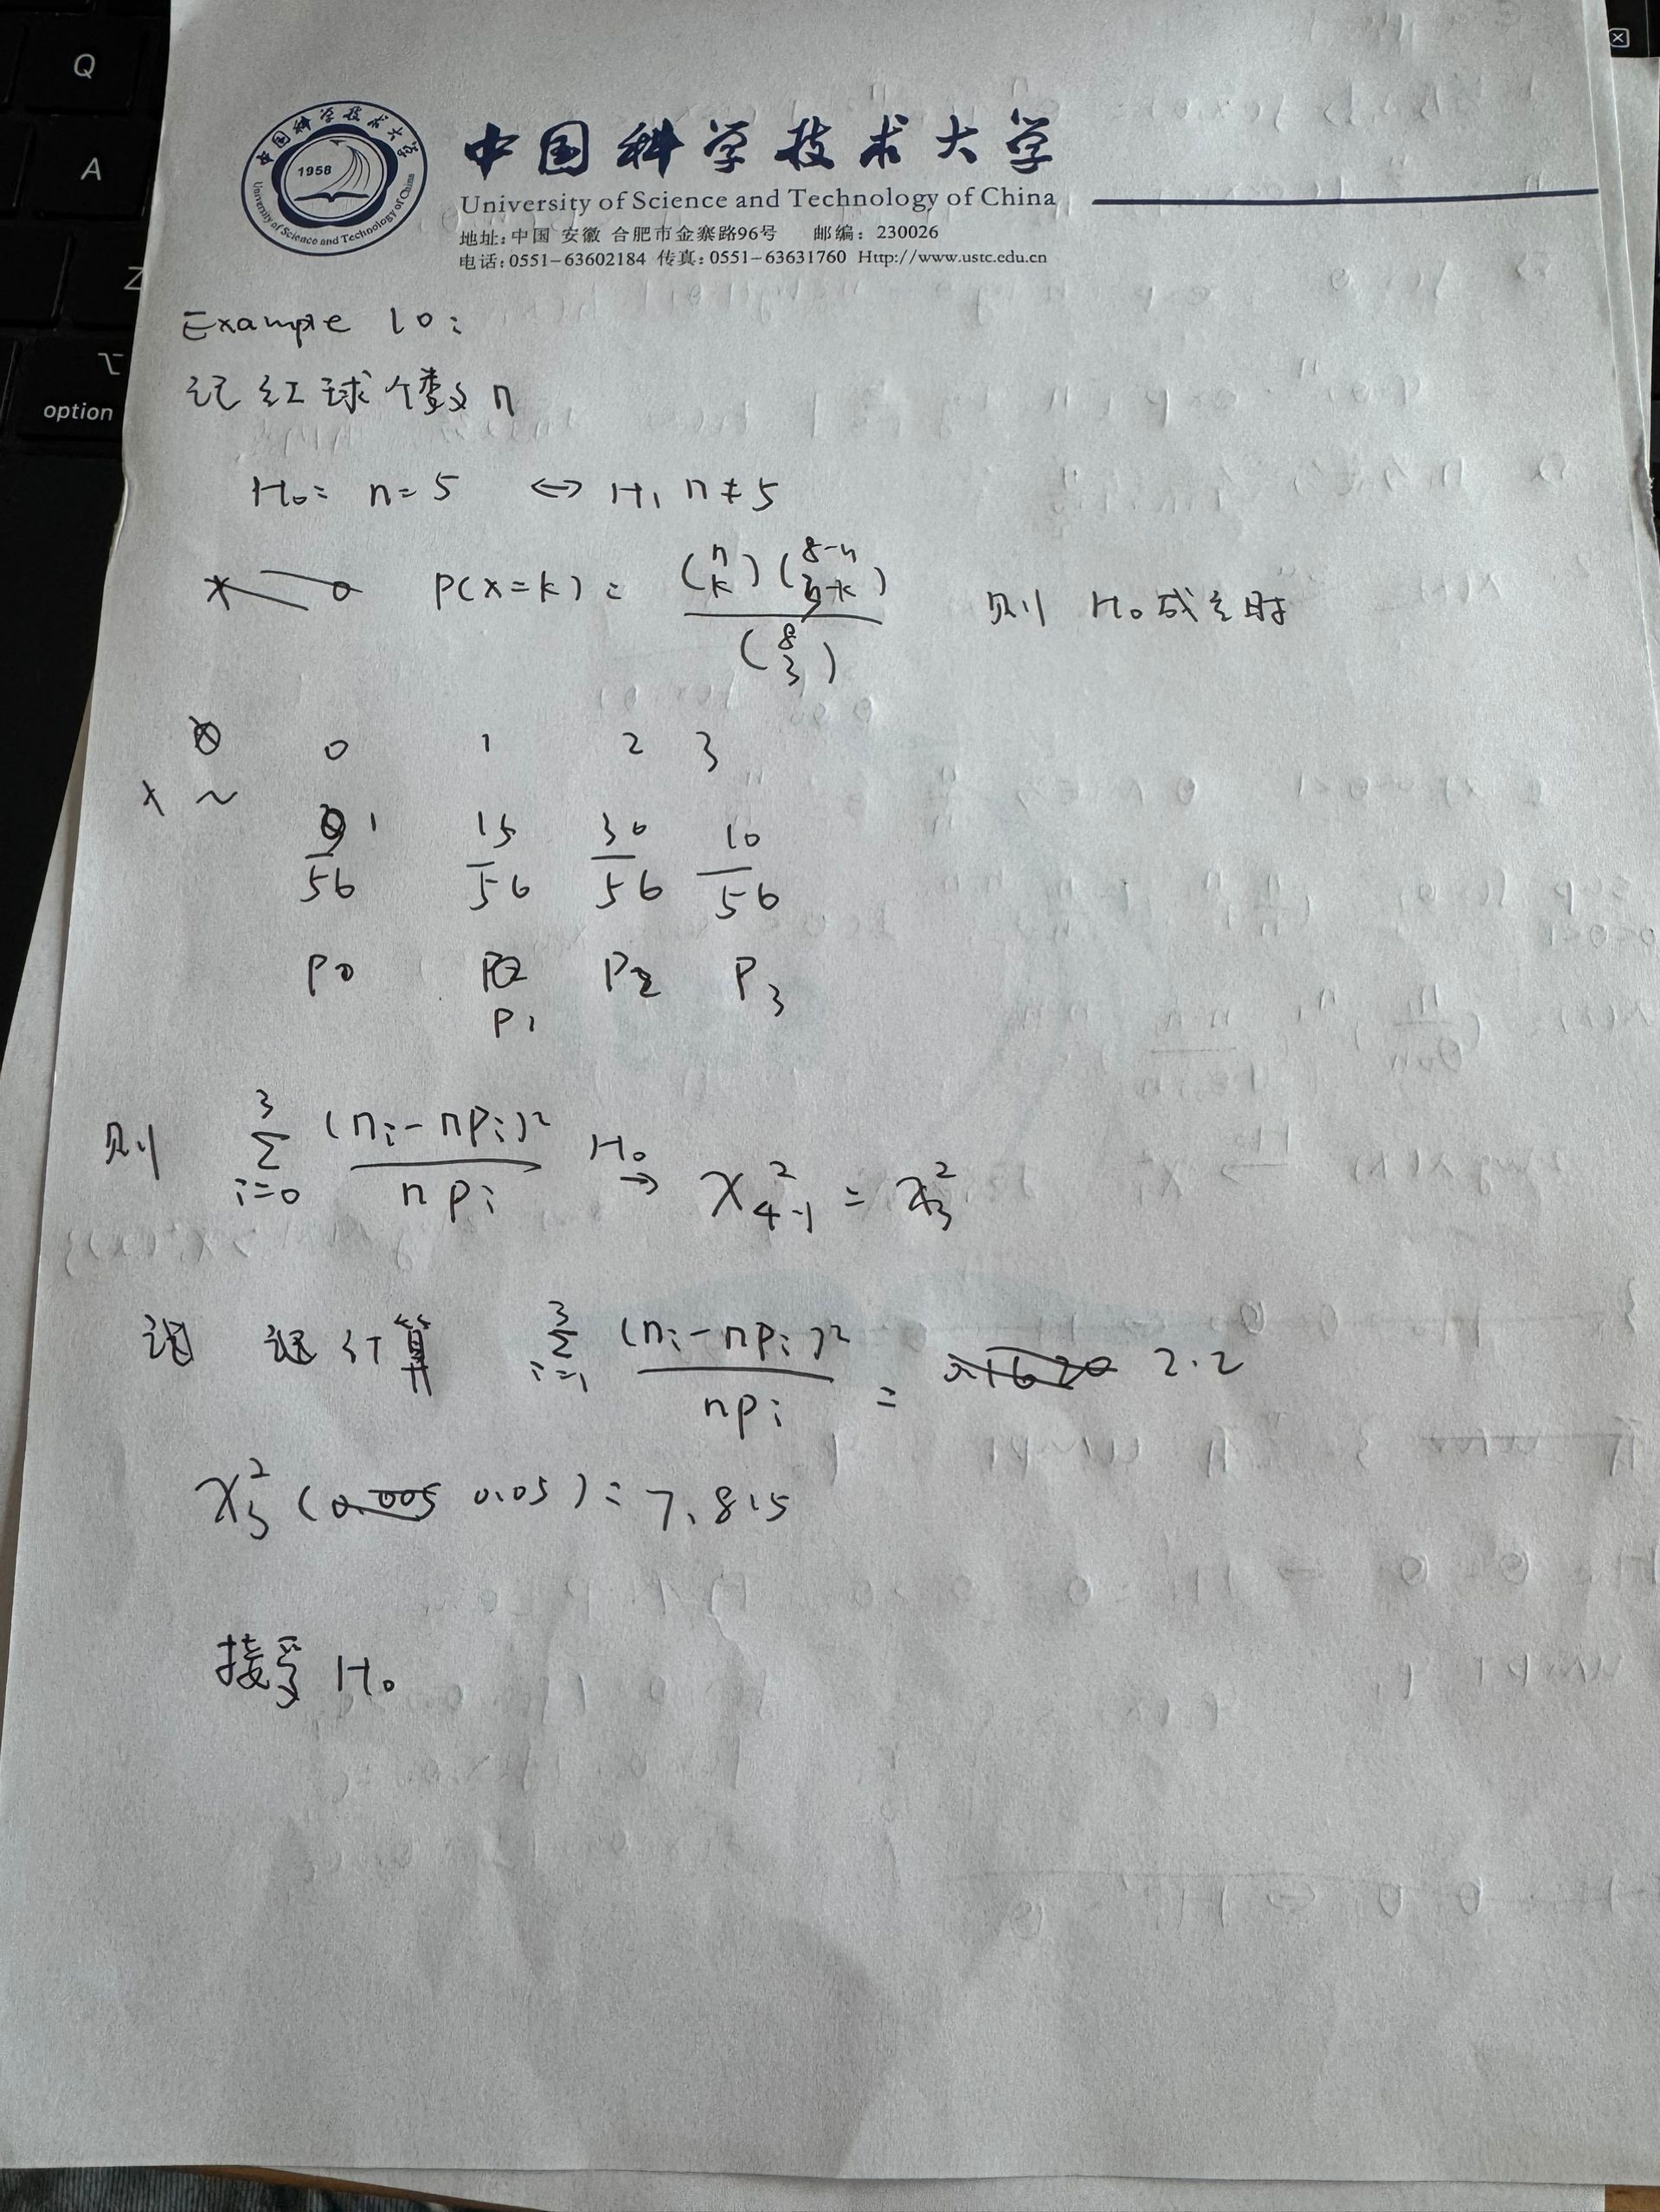 Q
A
Z
option
中国科学技术大学
1958
University of Science and Technology of China
中国科学技术大学
University of Science and Technology of China
地址:中国 安徽 合肥市金寨路96号 邮编: 230026
电话:0551-63602184 传真:0551-63631760 Http://www.ustc.edu.cn
Example 10:
记红球个数 n
H₀: n=5 ↔ H₁ n≠5
P(X=k) = \frac{\binom{n}{k}\binom{8-n}{3-k}}{\binom{8}{3}} 则 H₀成立时
0 1 2 3
X ~
1/56 15/56 30/56 10/56
P0 P2 P2 P3
P1
则 \sum_{i=0}^{3} \frac{(n_i - np_i)^2}{np_i} \xrightarrow{H_0} χ²_{4-1} = χ²_3
计算 \sum_{i=1}^{3} \frac{(n_i - np_i)^2}{np_i} = 2.2
χ²_3 (0.05) = 7.815
接受 H₀